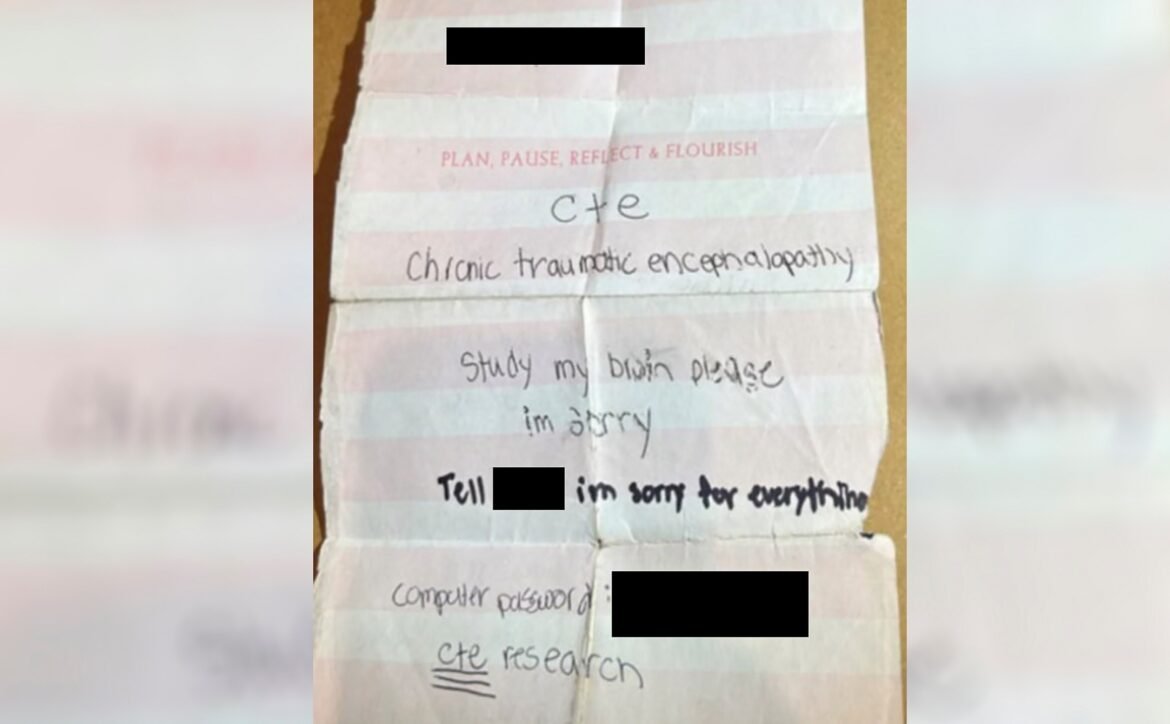 PLAN, PAUSE, REFLECT & FLOURISH
cte
Chronic traumatic encephalopathy
Study my brain please
im sorry
Tell im sorry for everything
computer password :
cte research